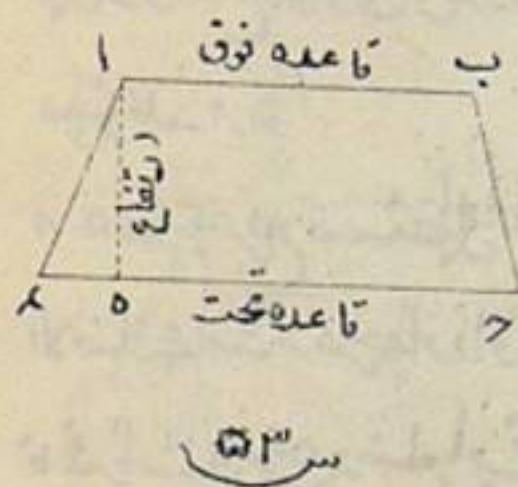 ا قاعده فوق ب
ارتفاع
د ه قاعده تحت ح